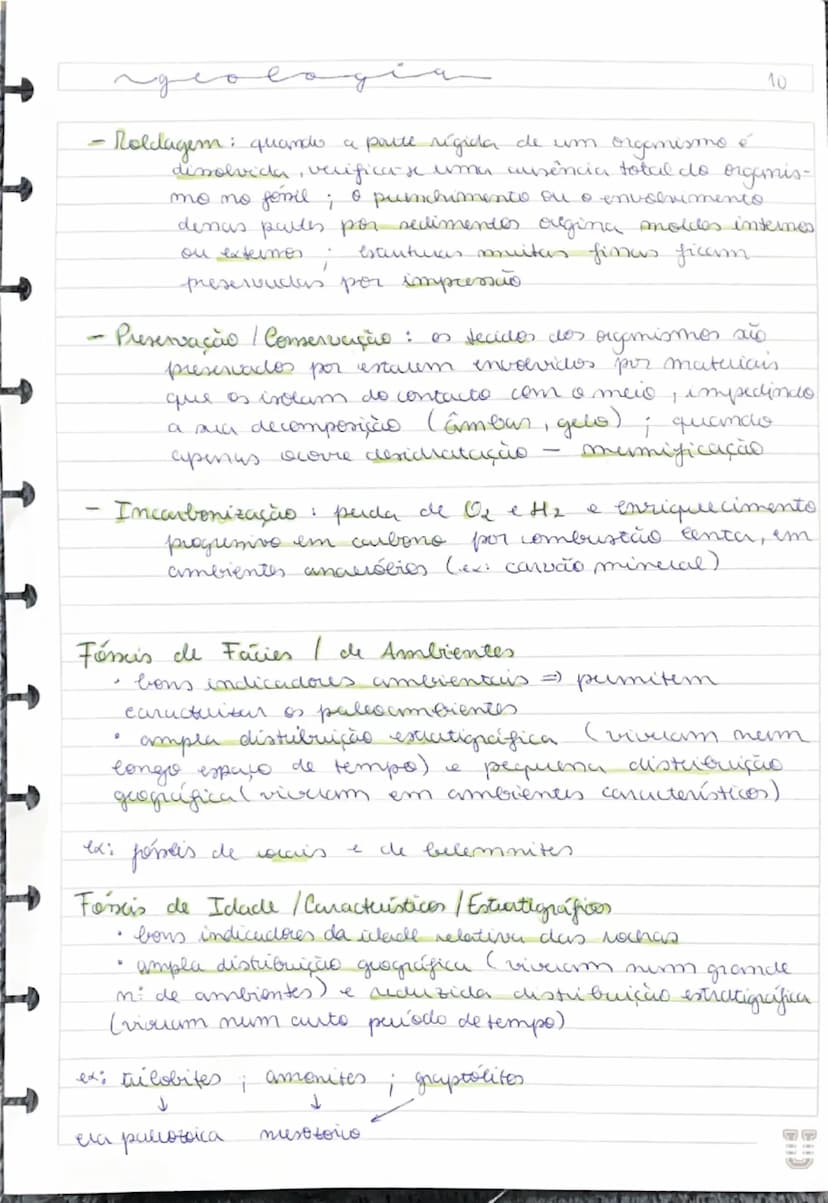 geologia 10
- Moldagem: quando a parte rígida de um organismo é
dissolvida, verifica-se uma ausência total do organis-
mo no fóssil; o preenchimento ou o envolvimento
dessas partes por sedimentos origina moldes internos
ou externos; estruturas muitas finas ficam
preservadas por impressão
- Preservação / Conservação: os tecidos dos organismos são
preservados por estarem envolvidos por materiais
que os isolam do contacto com o meio, impedindo
a sua decomposição (âmbar, gelo); quando
apenas ocorre desidratação - mumificação
- Incarbonização: perda de O2 e H2 e enriquecimento
progressivo em carbono por combustão lenta, em
ambientes anaeróbios (ex: carvão mineral)
Fósseis de Fácies / de Ambientes
• bons indicadores ambientais => permitem
caracterizar os paleoambientes
• ampla distribuição estratigráfica (viveram num
longo espaço de tempo) e pequena distribuição
geográfica (viveram em ambientes característicos)
ex: fósseis de corais e de belemnites
Fósseis de Idade / Característicos / Estratigráficos
• bons indicadores da idade relativa das rochas
• ampla distribuição geográfica (viveram num grande
nº de ambientes) e reduzida distribuição estratigráfica
(viviam num curto período de tempo)
ex: trilobites; amonites; graptólites
↓ ↓ ↙
era paleozoica mesozoico
U